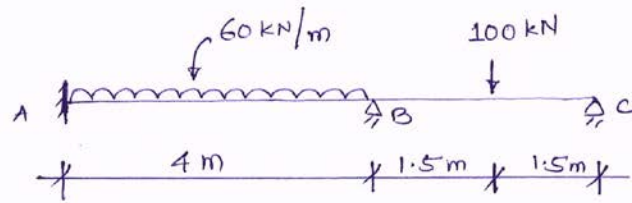 60 kN/m
100 kN
A
B
C
4 m
1.5 m
1.5 m